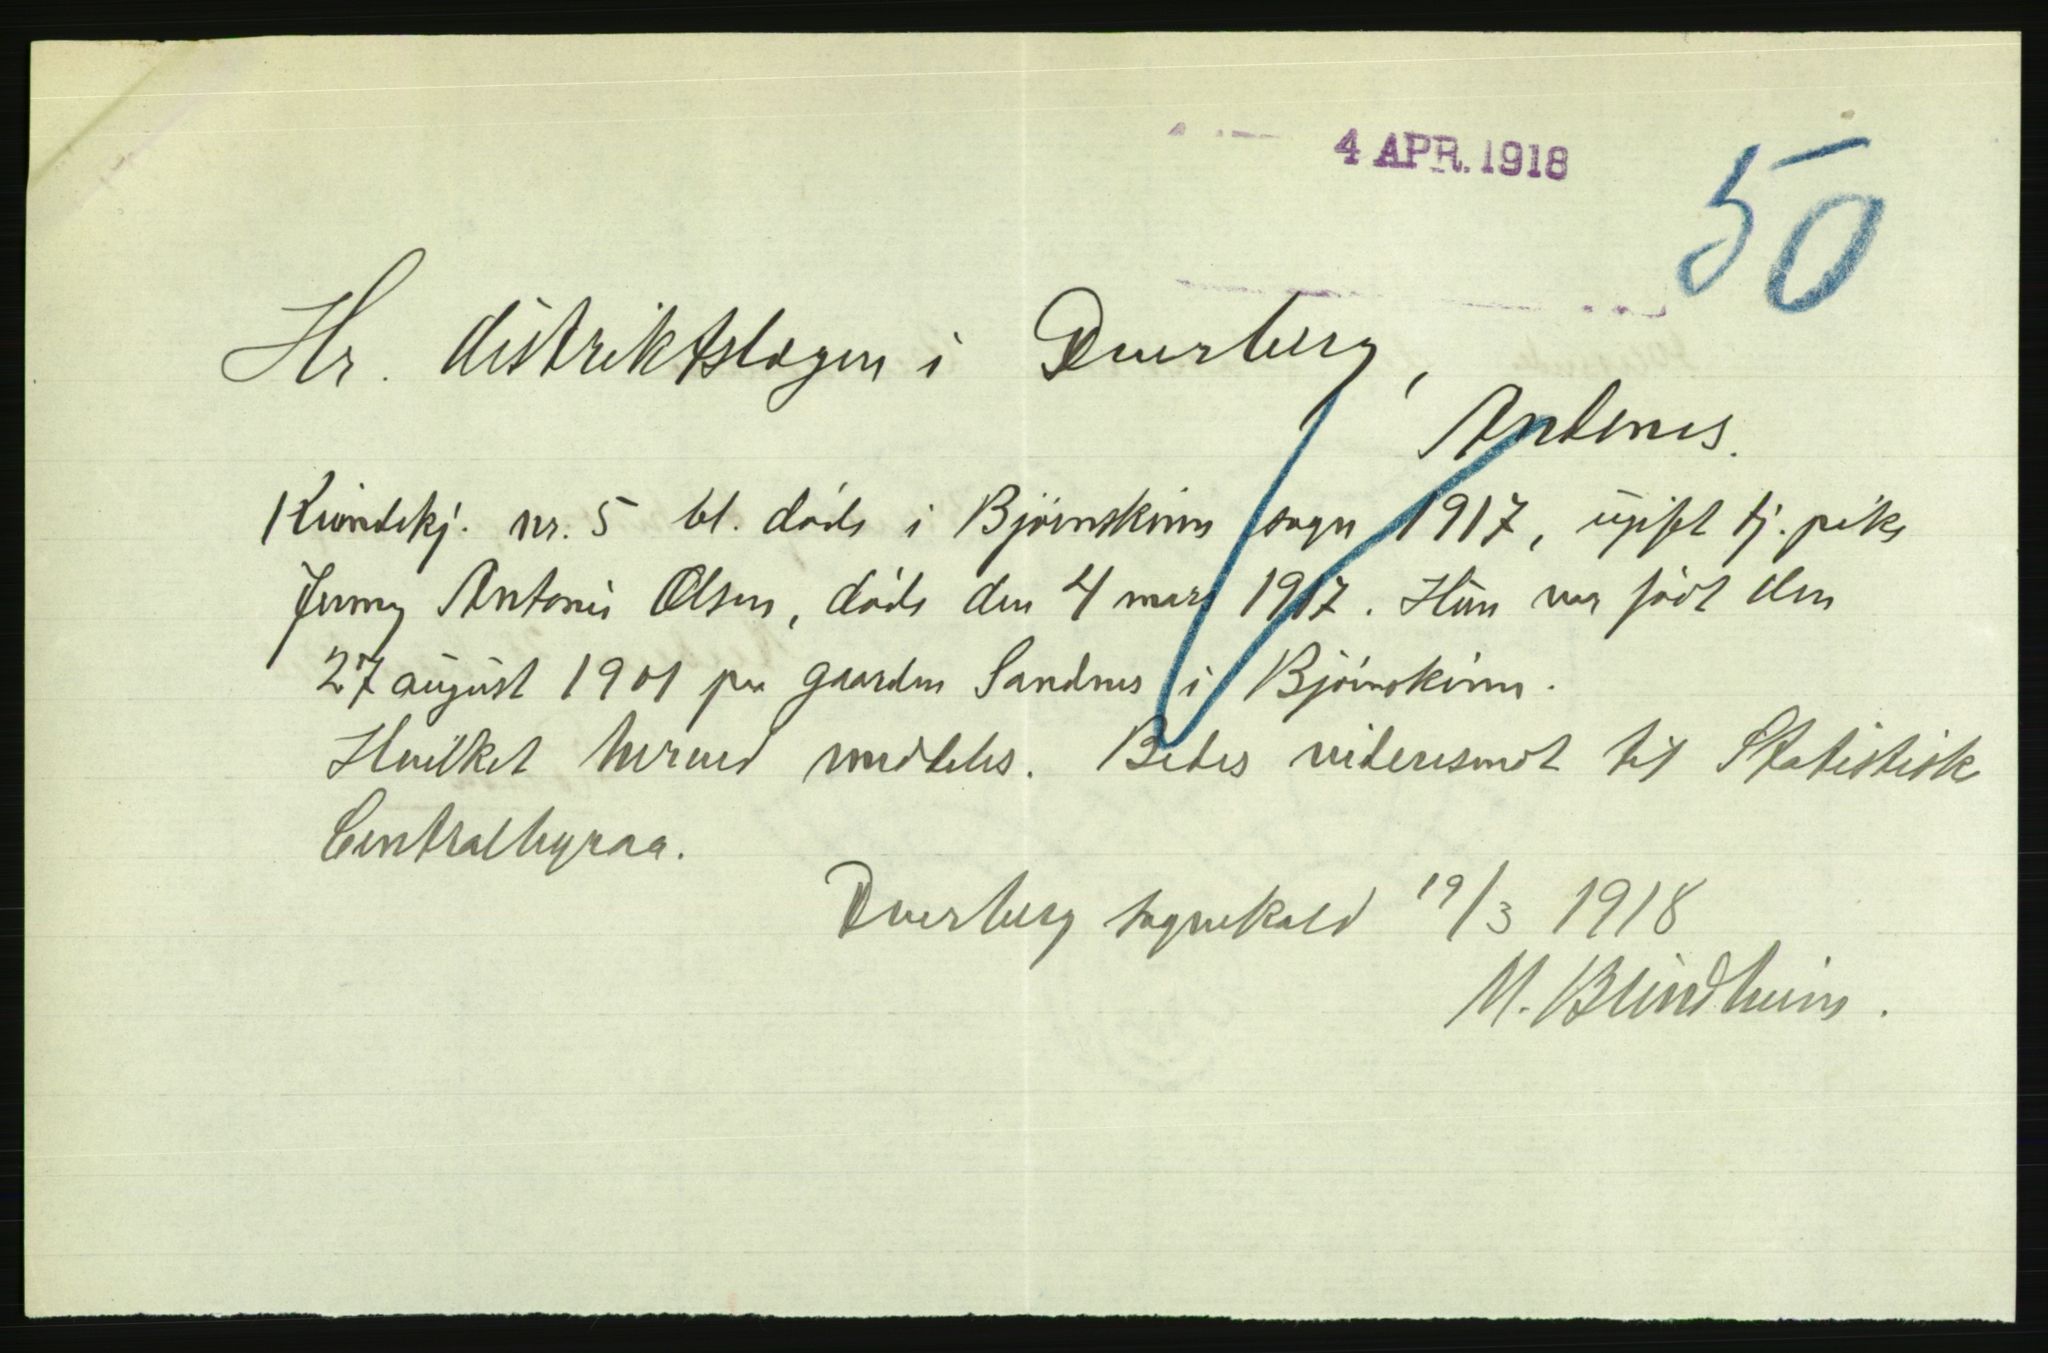 4 APR. 1918
50
Hr. distriktslægen i Dverberg,
Andenes.
Kvindekj. nr. 5 bl. døde i Bjørnskinn sogn 1917, ugift tj. pike
Jenny Antonie Olsen, døde den 4 mars 1917. Hun var født den
27 august 1901 paa gaarden Sandnes i Bjørnskinn.
Hvilket herved meddeles. Bedes videresendt til Statistisk
Centralbyraa.
Dverberg sognekald 19/3 1918
M. Blindheim.